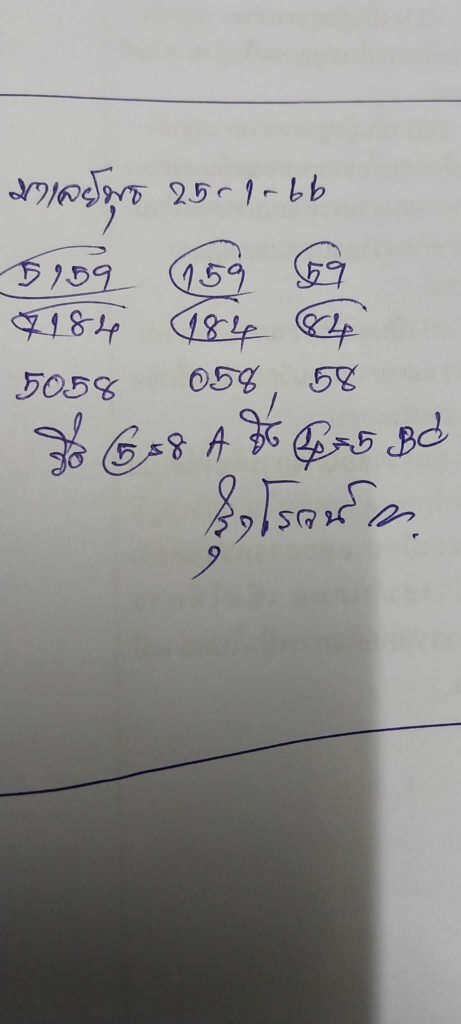 มาเลย์พุธ 25-1-66
5159 159 59
7184 184 84
5058 058, 58
วิ่ง 5=8 A วิ่ง 4=5 BC
รุ่งโรจน์